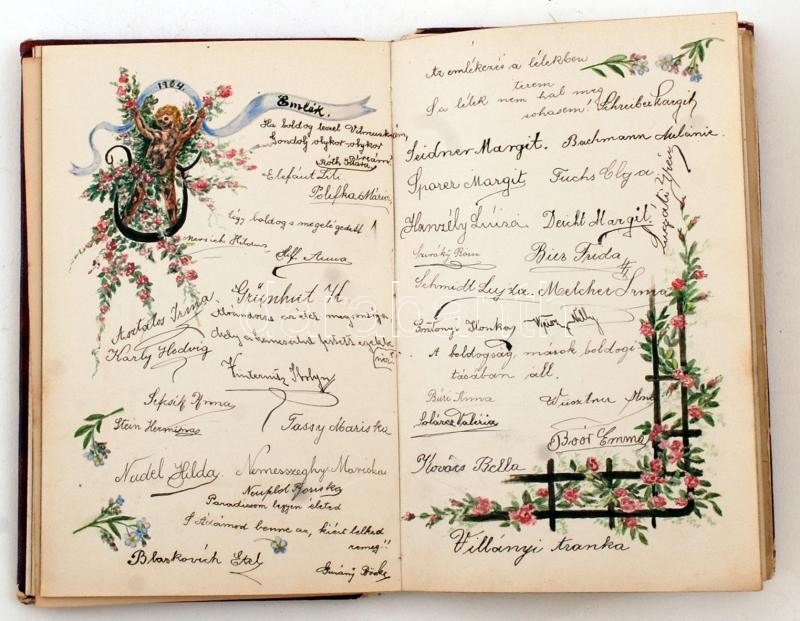 1904.
Emlék.
Ha boldog leszel Vilmuskám,
Gondolj olykor-olykor
reám!
Róth Klára
Elefánt Liti
Polifka Mária
Légy boldog s megelégedett
Hlf Anna
Grünhut K
Asztalos Irma
Karly Hedvig
Sefcsik Anna
Stein Hermina
Tassy Mariska
Nudel Hilda.
Nemesszeghy Mariska
Paradicsom legyen életed
S Ádámod benne az, kiért lelked
remeg!!
Blaskovich Etel
Az emlékezés a lélekben
terem
S a lélek nem hal meg
sohasem!
Schreiber Margit
Seidner Margit.
Bachmann Melánie.
Sporer Margit
Fuchs Olga
Hanzély Luiza
Deickt Margit.
Sziváky Rózsa
Bies Frida
Schmidt Lujza
Melcher Irma
Posztonyi Ilonka
Nelly
A boldogság, mások boldogi
tásában áll.
Büri Anna
Wüsztner
Solárcz Valéria
Boór Emma
Kovács Bella
Villányi Aranka
darabanth